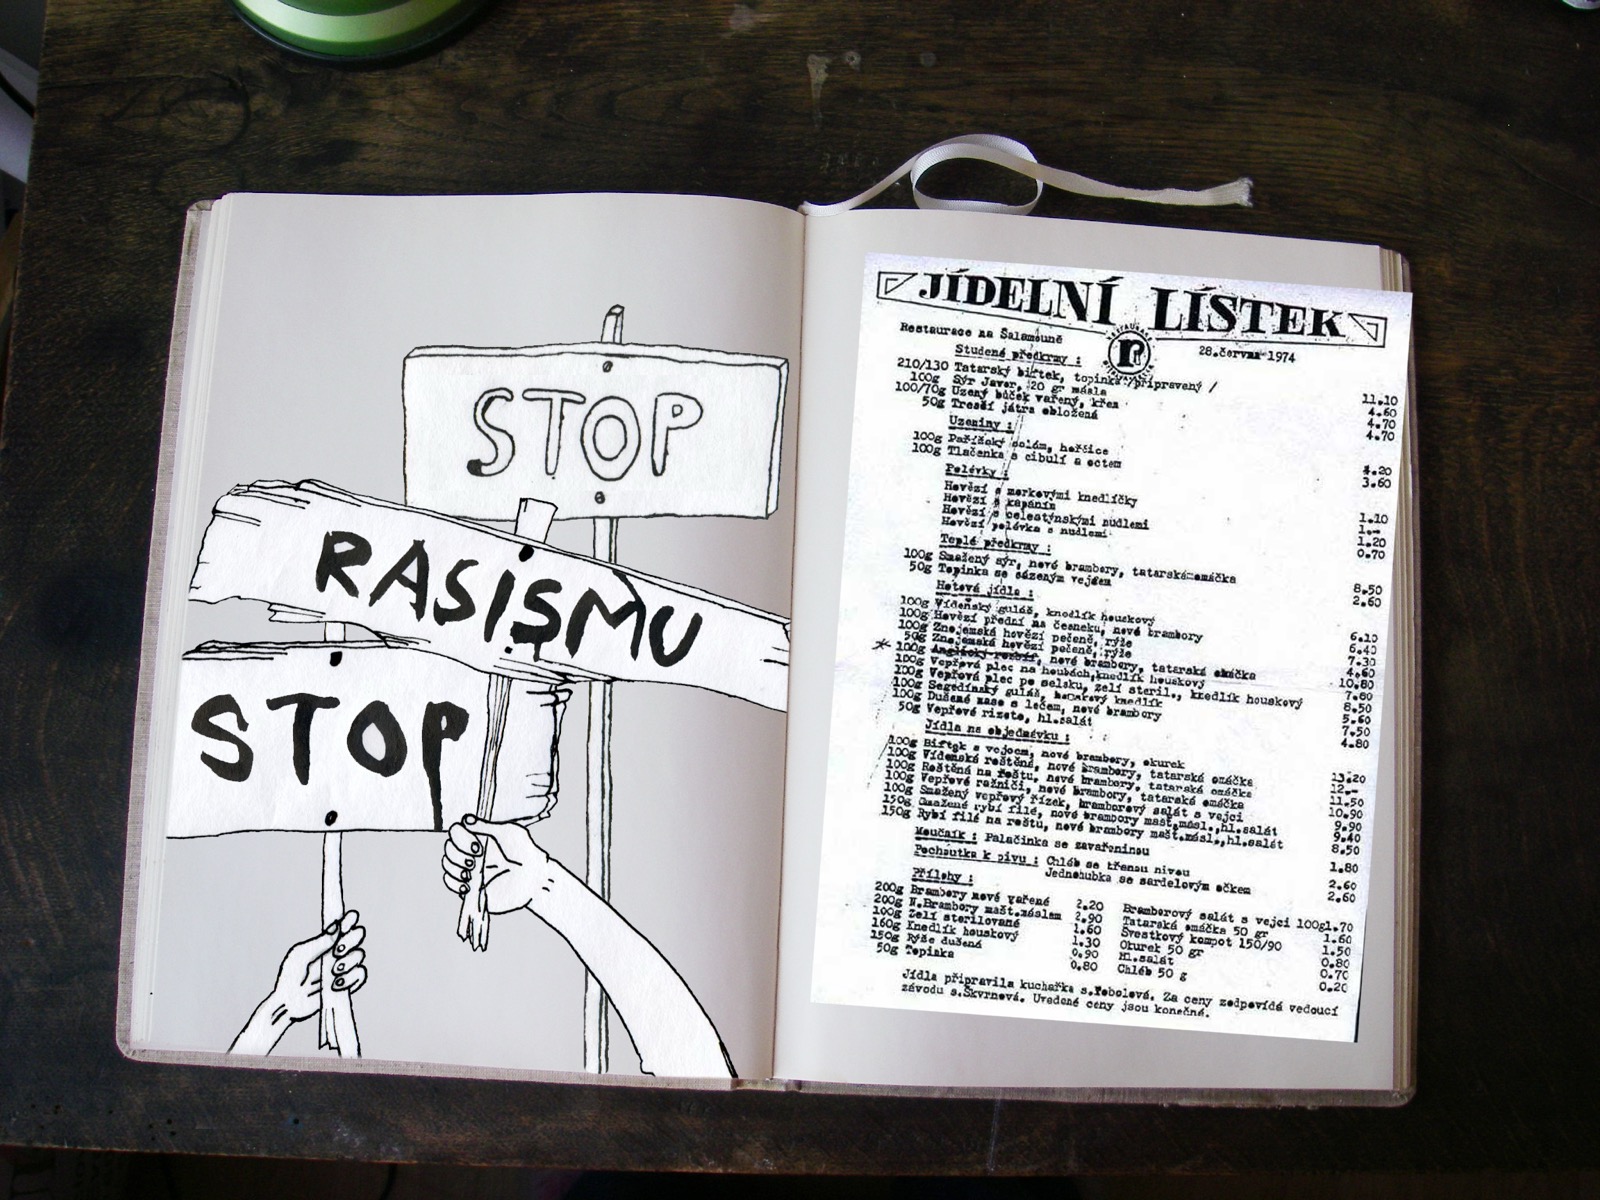 STOP
RASISMU
STOP
JÍDELNÍ LÍSTEK
Restaurace na Šalamouně
28.června 1974
Studené předkrmy :
210/130 Tatarský biftek, topinka /připravený / 11.10
100g Sýr Javor, 20 gr másla 4.60
100/70g Uzený bůček vařený, křen 4.70
50g Tresčí játra obložená 4.70
Uzeniny :
100g Pařížský salám, hořčice 4.20
100g Tlačenka s cibulí a octem 3.60
Polévky :
Hovězí s morkovými knedlíčky 1.10
Hovězí s kapáním 1.-
Hovězí s celestýnskými nudlemi 1.20
Hovězí polévka s nudlemi 0.70
Teplé předkrmy :
100g Smažený sýr, nové brambory, tatarská omáčka 8.50
50g Topinka se sázeným vejcem 2.60
Hotová jídla :
100g Vídeňský guláš, knedlík houskový 6.10
100g Hovězí přední na česneku, nové brambory 6.40
100g Znojemská hovězí pečeně, rýže 7.30
50g Znojemská hovězí pečeně, rýže 4.60
100g Anglický rostbíf, nové brambory, tatarská omáčka 10.80
100g Vepřová plec na houbách, knedlík houskový 7.80
100g Vepřová plec po selsku, zelí steril., knedlík houskový 8.50
100g Segedínský guláš, houskový knedlík 5.60
100g Dušené maso s lečem, nové brambory 7.50
50g Vepřové rizoto, hl.salát 4.80
Jídla na objednávku :
100g Biftek s vejcem, nové brambory, okurek 13.20
100g Vídeňská roštěná, nové brambory, tatarská omáčka 12.-
100g Roštěná na roštu, nové brambory, tatarská omáčka 11.50
100g Vepřové ražniči, nové brambory, tatarská omáčka 10.90
100g Smažený vepřový řízek, bramborový salát s vejci 9.90
150g Smažené rybí filé, nové brambory mašt.másl.,hl.salát 9.40
150g Rybí filé na roštu, nové brambory mašt.másl.,hl.salát 8.50
Moučník : Palačinka se zavařeninou 1.80
Pochoutka k pivu : Chléb se třenou nivou 2.60
Jednohubka se sardelovým očkem 2.60
Přílohy :
200g Brambory nové vařené 2.20
200g N.Brambory mašt.máslem 2.90
100g Zelí sterilované 1.60
160g Knedlík houskový 1.30
150g Rýže dušená 0.90
50g Topinka 0.80
Bramborový salát s vejci 100g1.70
Tatarská omáčka 50 gr 1.60
Švestkový kompot 150/90 1.50
Okurek 50 gr 0.80
Hl.salát 0.70
Chléb 50 g 0.20
Jídla připravila kuchařka s. Za ceny zodpovídá vedoucí
závodu s.Škvrnová. Uvedené ceny jsou konečné.